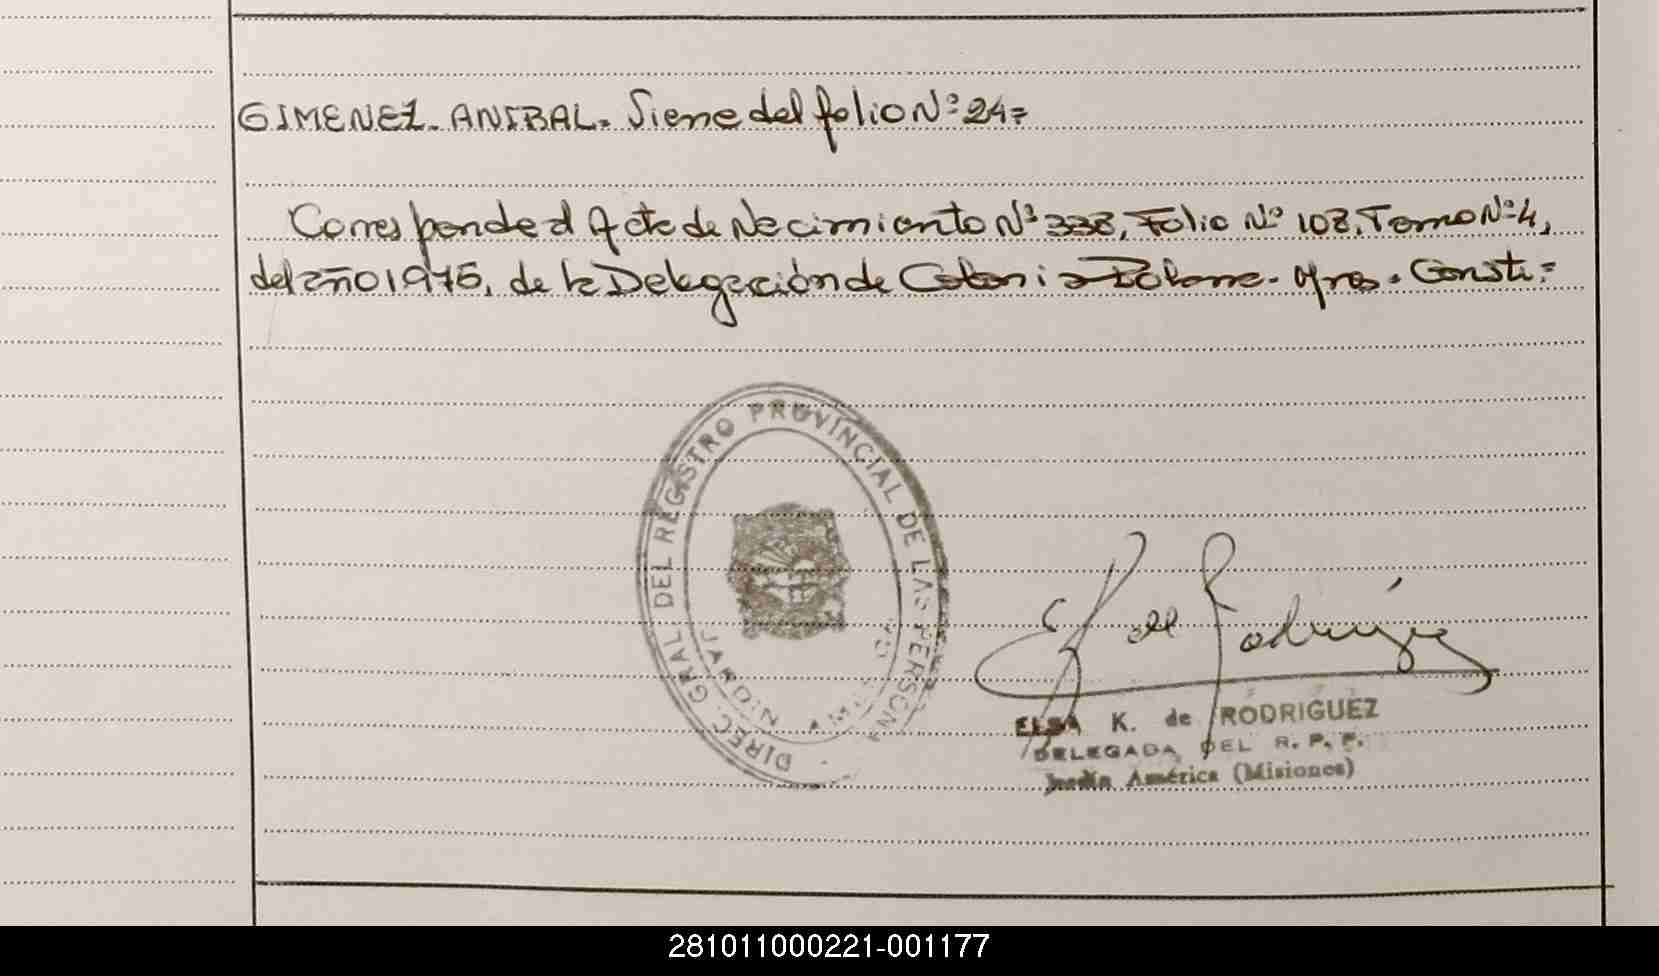 GIMENEZ. ANIBAL. Viene del folio Nº 24=
Corresponde al Acta de Nacimiento Nº 338, Folio Nº 108, Tomo Nº 4,
del año 1975, de la Delegación de Colonia Polana. Mnes. Conste=
DIREC. GRAL DEL REGISTRO PROVINCIAL DE LAS PERSON
JARDIN AM
ELSA K. de RODRIGUEZ
DELEGADA DEL R. P. P.
Jardín América (Misiones)
281011000221-001177